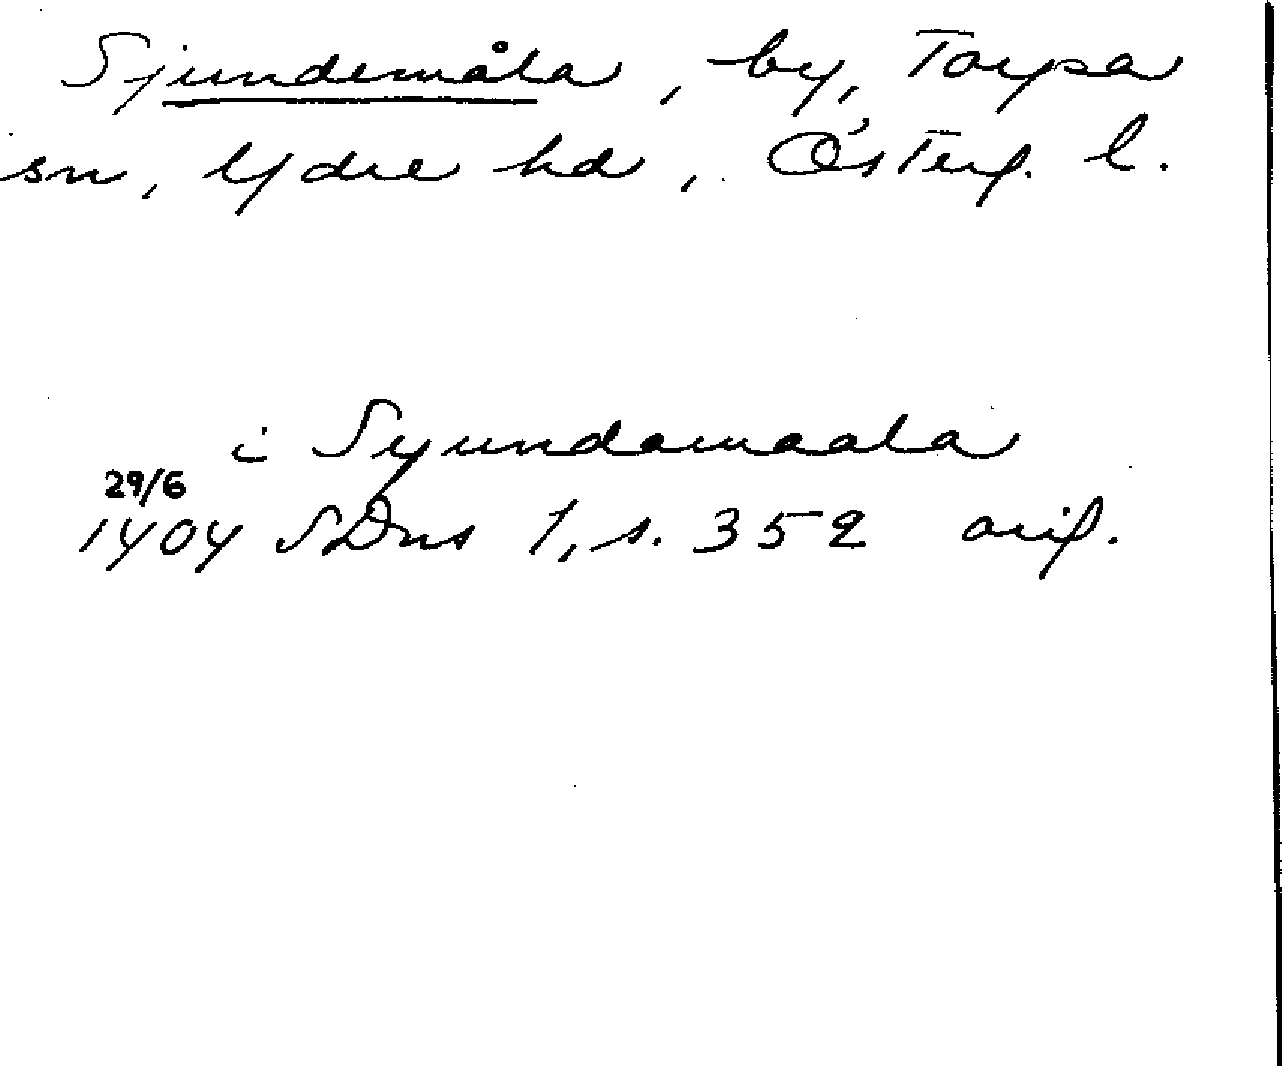 Sjundemåla, by, Torpa
sn, Ydre hd, Österg. l.
i Syundamaala
29/6
1404 SDns 1, s. 352 orig.